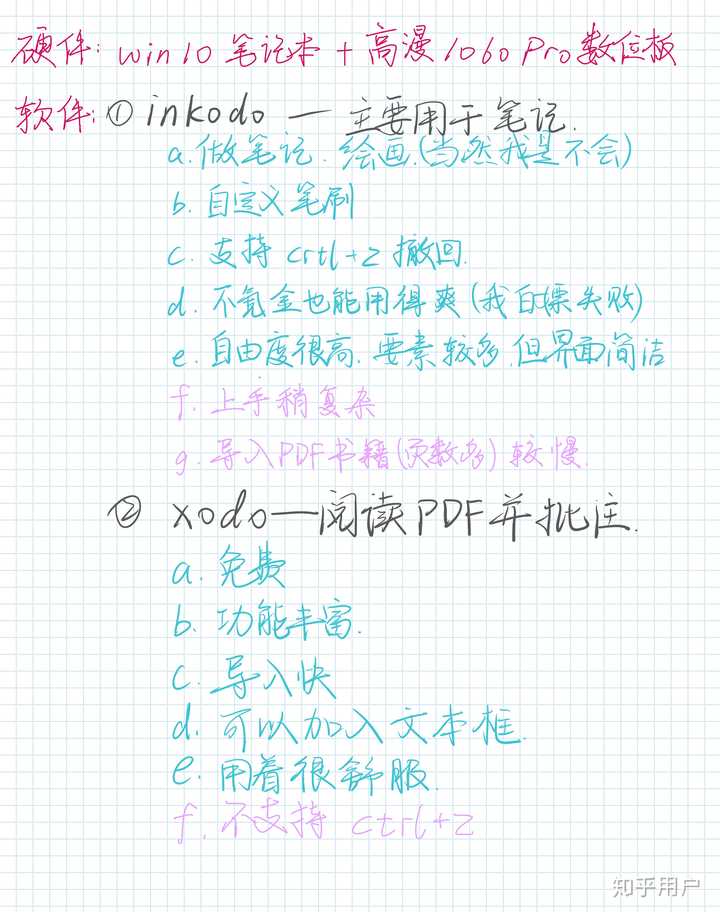 硬件: win10 笔记本 + 高漫1060 Pro数位板
软件: ① inkodo — 主要用于笔记.
a. 做笔记. 绘画.(当然我是不会)
b. 自定义笔刷
c. 支持 crtl+z 撤回.
d. 不氪金也能用得爽 (我白嫖失败)
e. 自由度很高. 要素较多.但界面简洁
f. 上手稍复杂
g. 导入PDF书籍(页数多) 较慢.
② xodo—阅读PDF并批注.
a. 免费
b. 功能丰富.
c. 导入快
d. 可以加入文本框.
e. 用着很舒服.
f. 不支持 ctrl+z
知乎用户